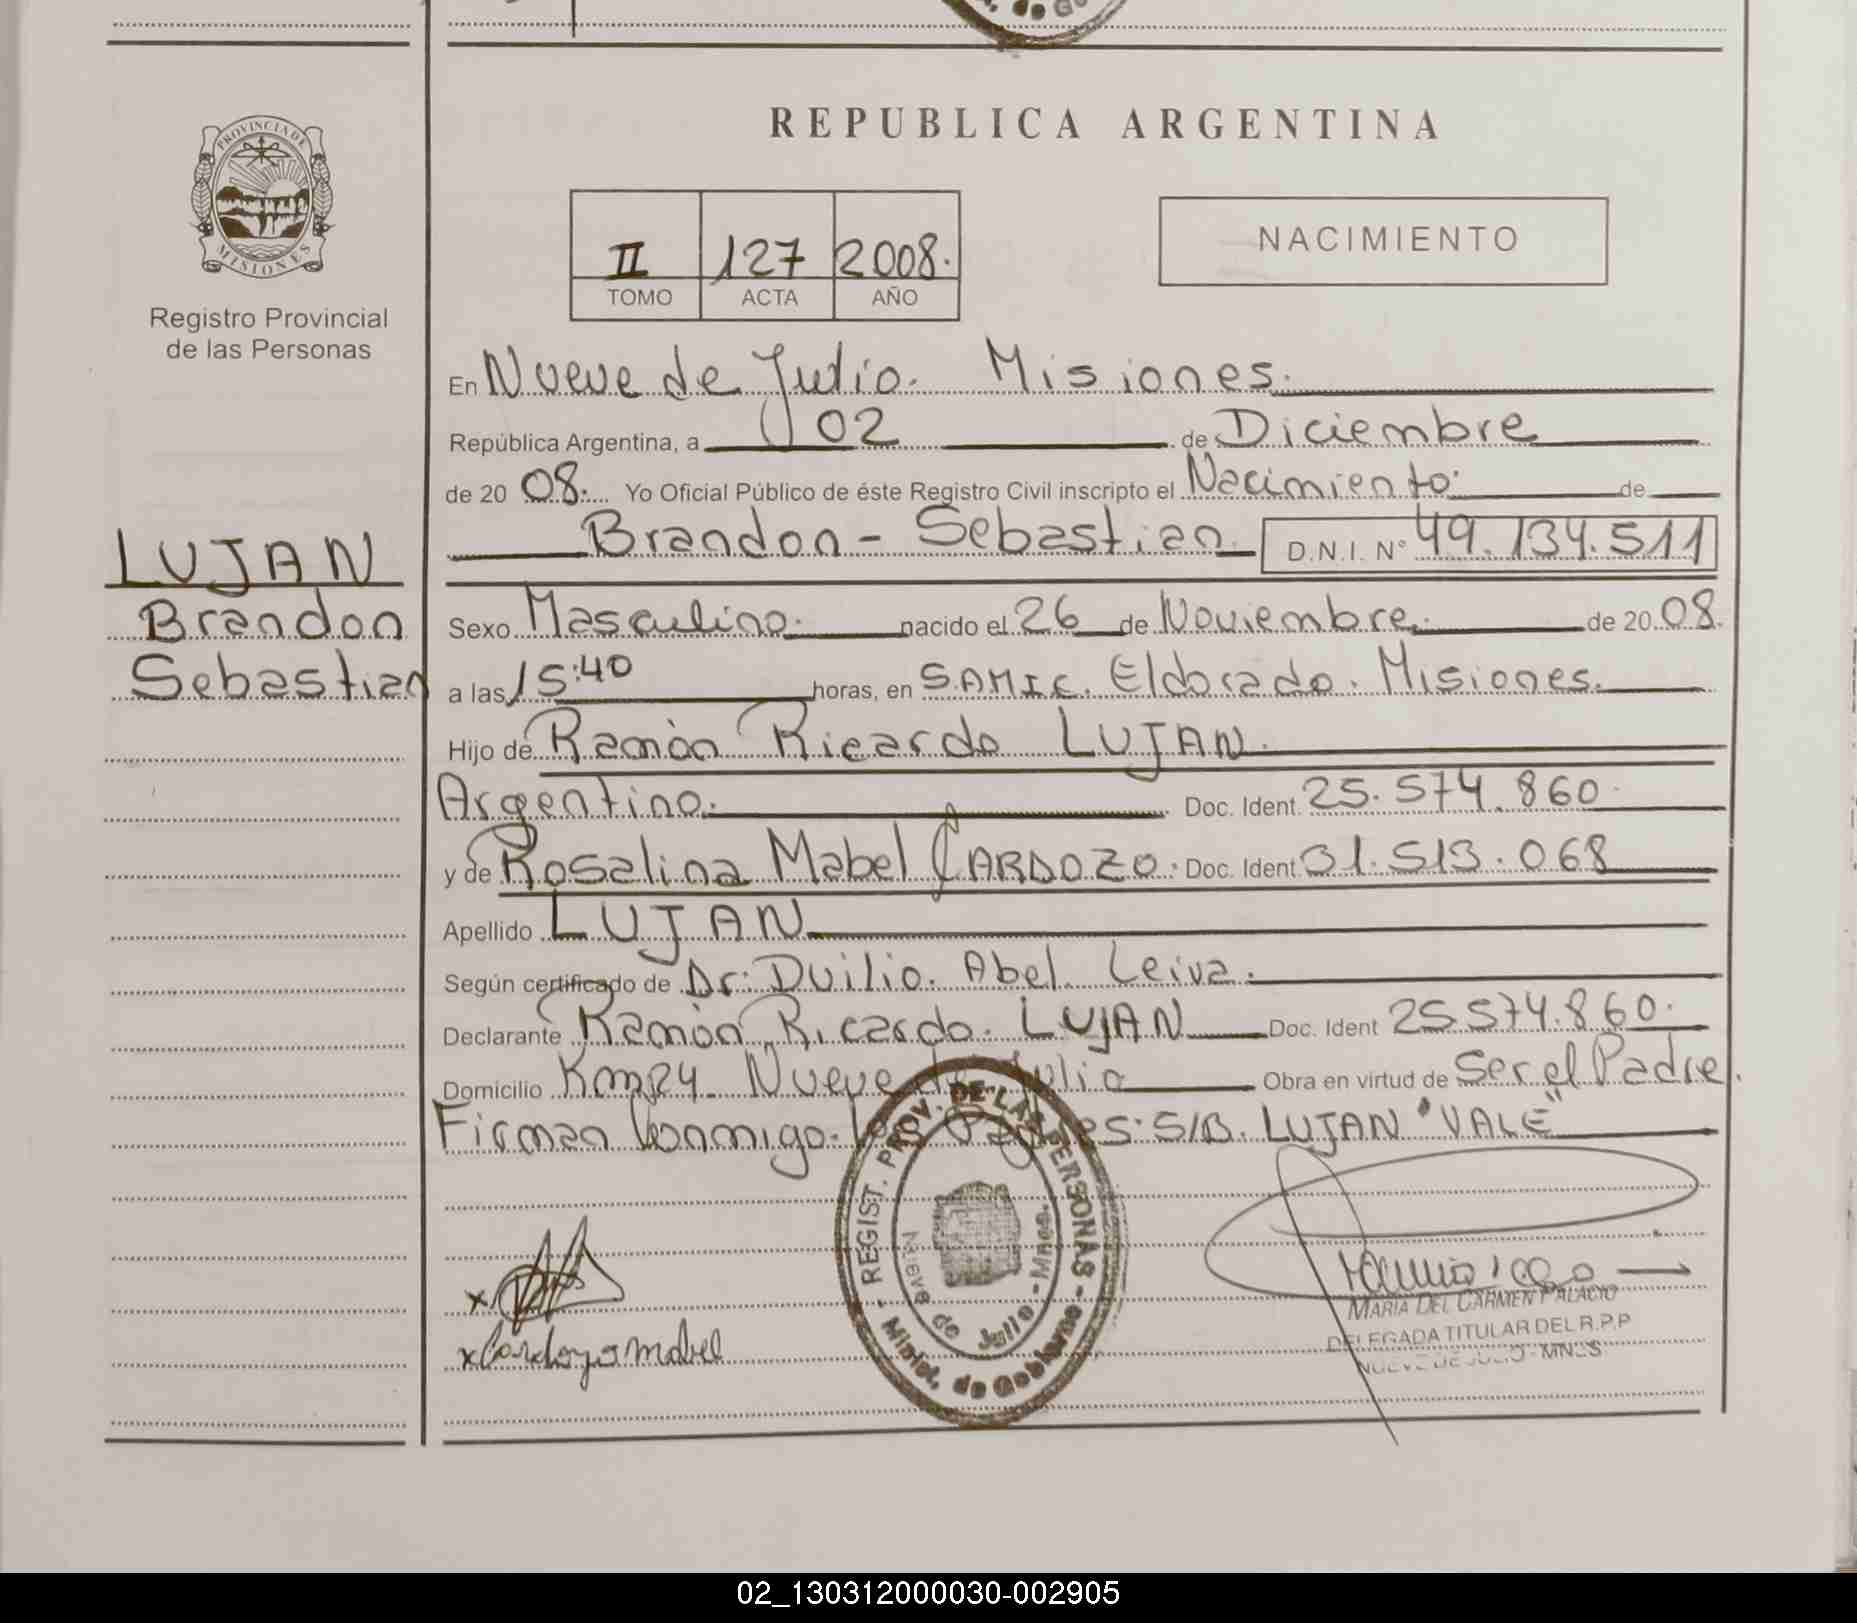 de Go
REPUBLICA ARGENTINA
PROVINCIA DE
MISIONES
Registro Provincial
de las Personas
II 127 2008.
TOMO ACTA AÑO
NACIMIENTO
En Nueve de Julio. Misiones.
República Argentina, a 02 de Diciembre
de 20 08. Yo Oficial Público de éste Registro Civil inscripto el Nacimiento de
Brandon - Sebastian D.N.I. N° 49.134.511
LUJAN
Brandon
Sebastian
Sexo Masculino. nacido el 26 de Noviembre. de 20 08.
a las 15:40 horas, en S.A.M.I.C. Eldorado. Misiones.
Hijo de Ramòn Ricardo LUJAN.
Argentino. Doc. Ident. 25.574.860.
y de Rosalina Mabel CARDOZO. Doc. Ident 31.513.068
Apellido LUJAN
Según certificado de Dr: Duilio. Abel. Leiva.
Declarante Ramòn Ricardo. LUJAN Doc. Ident 25574.860.
Domicilio Km24. Nueve de Julio Obra en virtud de Ser el Padre.
Firman Conmigo. Los Padres. S/B. LUJAN "VALE"
REGIST. PROV. DE LAS PERSONAS - Minist. de Gobierno -
Nueve de Julio - Mnes.
x
x Cardozo mabel
MARIA DEL CARMEN PALACIO
DELEGADA TITULAR DEL R.P.P
NUEVE DE JULIO - MNES
02_130312000030-002905